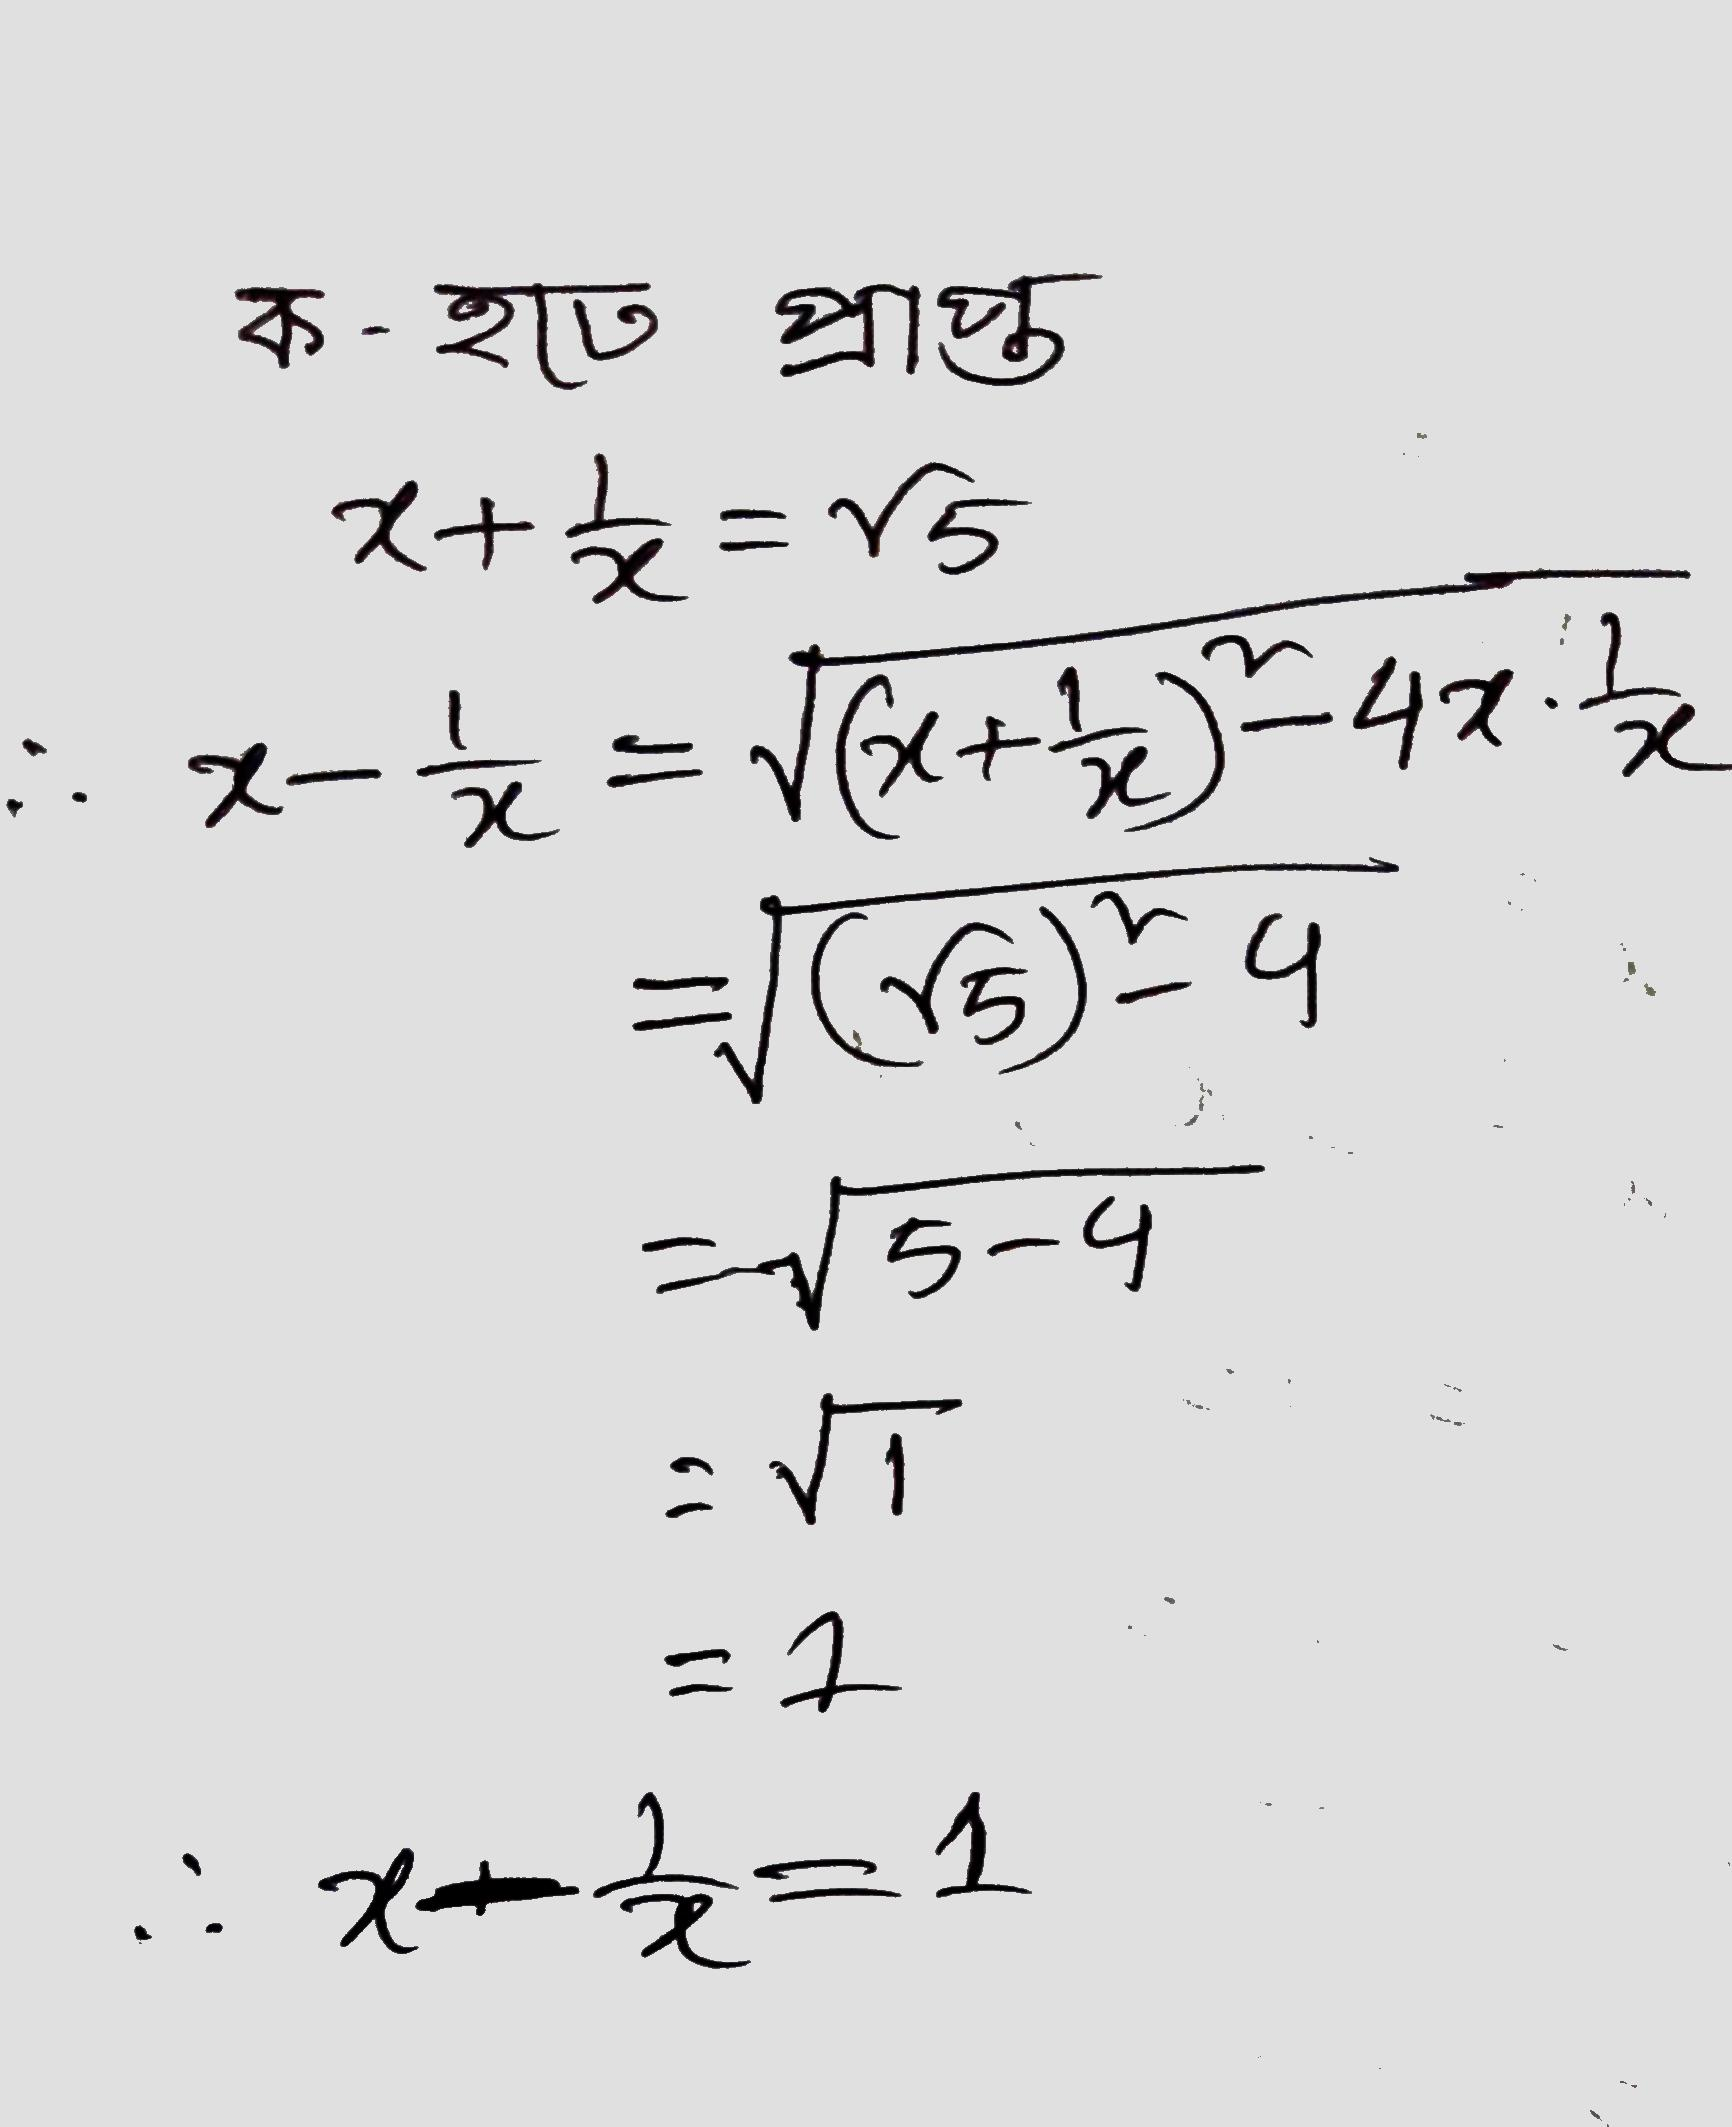 ক - হতে প্রাপ্ত
x + 1/x = √5
∴ x - 1/x = √((x + 1/x)² - 4x · 1/x)
= √((√5)² - 4)
= √(5 - 4)
= √1
= 1
∴ x - 1/x = 1